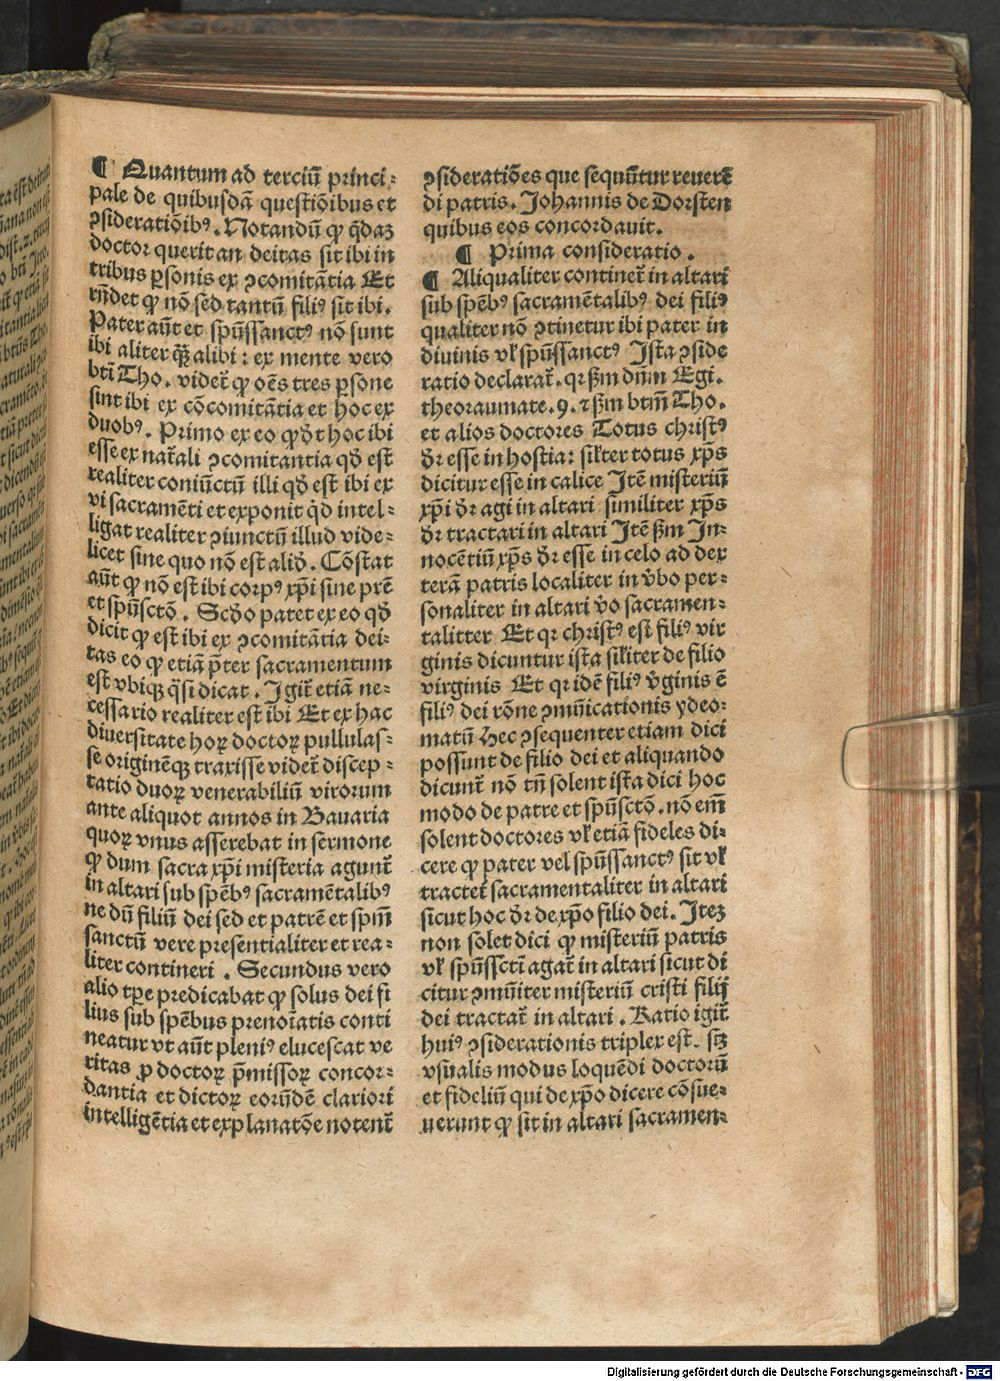 ¶ Quantum ad terciū princi⸗
pale de quibusdā questiōibus et
ꝯsideratiōibꝰ. Notandū qꝙ q̄daꝫ
doctor querit an deitas sit ibi in
tribus ꝑsonis ex ꝯcomitātia Et
rn̄det ꝙ nō sed tantū filiꝰ sit ibi.
Pater aūt et spūssanctꝰ nō sunt
ibi aliter qꝫ̄ alibi : ex mente vero
btī Tho. videt̄ ꝙ oēs tres ꝑsone
sint ibi ex cōcomitātia et hoc ex
duobꝰ. Primo ex eo ꝙ dt̄ hoc ibi
esse ex nat̄ali ꝯcomitantia qd̄ est
realiter coniūctū illi qd̄ est ibi ex
vi sacramēti et exponit q̄d intel⸗
ligat realiter ꝯiunctū illud vide⸗
licet sine quo nō est alid̄. Cōstat
aūt ꝙ nō est ibi corpꝰ xp̄i sine prē
et spūsctō. Scd̄o patet ex eo qd̄
dicit ꝙ est ibi ex ꝯcomitātia dei⸗
tas eo ꝙ etiā p̄ter sacramentum
est vbiqꝫ q̄si dicat. Igit̄ etiā ne⸗
cessario realiter est ībi Et ex hac
diuersitate hoꝝ doctoꝝ pullulas⸗
se originēqꝫ traxisse videt̄ discep⸗
tatio duoꝝ venerabiliū virorum
ante aliquot annos in Bauaria
quoꝝ vnus asserebat in sermone
ꝙ dum sacra xp̄i misteria agunt̄
in altari sub spēbꝰ sacramētalibꝰ
ne dū filiū dei sed et patrē et spm̄
sanctū vere presentialiter et rea⸗
liter contineri . Secundus vero
alio tꝑe predicabat ꝙ solus dei fi
lius sub spēbus prenoīatis conti
neatur vt aūt pleniꝰ elucescat ve
ritas ꝓ doctoꝝ p̄missoꝝ concor⸗
dantia et dictoꝝ eorūdē clariori
intelligētia et explanatōe notent̄
ꝯsideratiōes que sequūtur reuerē
di patris. Johannis de Dorsten
quibus eos concordauit.
¶ Prima consideratio .
¶ Aliqualiter continet̄ in altari
sub spēbꝰ sacramētalibꝰ dei filiꝰ
qualiter nō ꝯtinetur ibi pater in
diuinis vl̄ spūssanctꝰ Ista ꝯside
ratio declarat̄. qꝛ ẜm dn̄m Egi.
theoraumate. 9. ⁊ ẜm btm̄ Tho.
et alios doctores Totus christꝰ
dr̄ esse in hostia: sil̄iter totus xp̄s
dicitur esse in calice Itē misteriū
xp̄i dr̄ agi in altari similiter xp̄s
dr̄ tractari in altari Itē ẜm In⸗
nocētiū xp̄s dr̄ esse in celo ad dex
terā patris localiter in v̄bo per⸗
sonaliter in altari v̄o sacramen⸗
talitter Et qꝛ christꝰ est filiꝰ vir
ginis dicuntur ista sil̄iter de filio
virginis Et qꝛ idē filiꝰ v̄ginis ē
filiꝰ dei rōne ꝯmūicationis ydeo⸗
matū Hec ꝯsequenter etiam dici
possunt de filio dei et aliquando
dicunt̄ nō tn̄ solent ista dici hoc
modo de patre et spūsctō. nō em̄
solent doctores vl̄ etiā fideles di⸗
cere ꝙ pater vel spūssanctꝰ sit vl̄
tractet̄ sacramentaliter in altari
sicut hoc dr̄ de xp̄o filio dei. Iteꝫ
non solet dici ꝙ misteriū patris
vl̄ spūssctī agat̄ in altari sicut di
citur ꝯmūiter misteriū cristi filij
dei tractat̄ in altari . Ratio igit̄
huiꝰ ꝯsiderationis triplex est. sꝫ
vsualis modus loquēdi doctorū
et fideliū qui de xp̄o dicere cōsue⸗
uerunt ꝙ sit in altari sacramen⸗
Digitalisierung gefördert durch die Deutsche Forschungsgemeinschaft - DFG